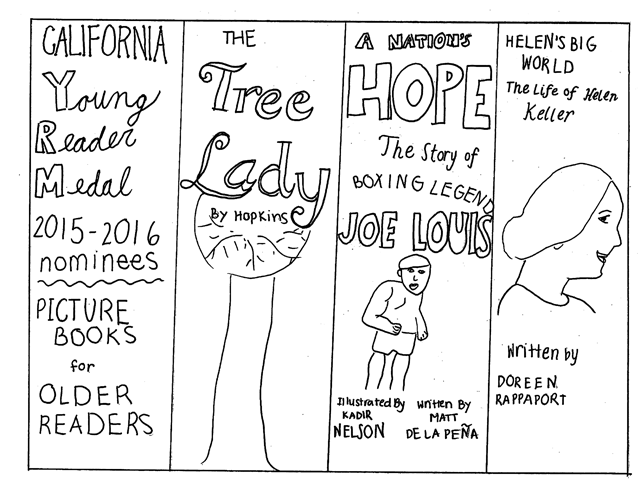 CALIFORNIA
Young
Reader
Medal
2015-2016
nominees
PICTURE
BOOKS
for
OLDER
READERS
THE
Tree
Lady
By Hopkins
A NATION'S
HOPE
The Story of
BOXING LEGEND
JOE LOUIS
Illustrated By
KADIR
NELSON
Written By
MATT
DE LA PEÑA
HELEN'S BIG
WORLD
The Life of Helen
Keller
Written by
DOREEN
RAPPAPORT